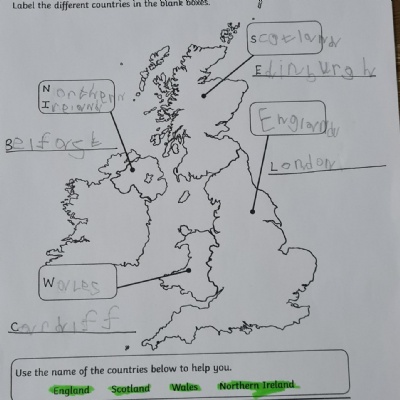 Label the different countries in the blank boxes.
Scotland
Edinburgh
Northern
Ireland
Belfast
England
London
Wales
Cardiff
Use the name of the countries below to help you.
England Scotland Wales Northern Ireland